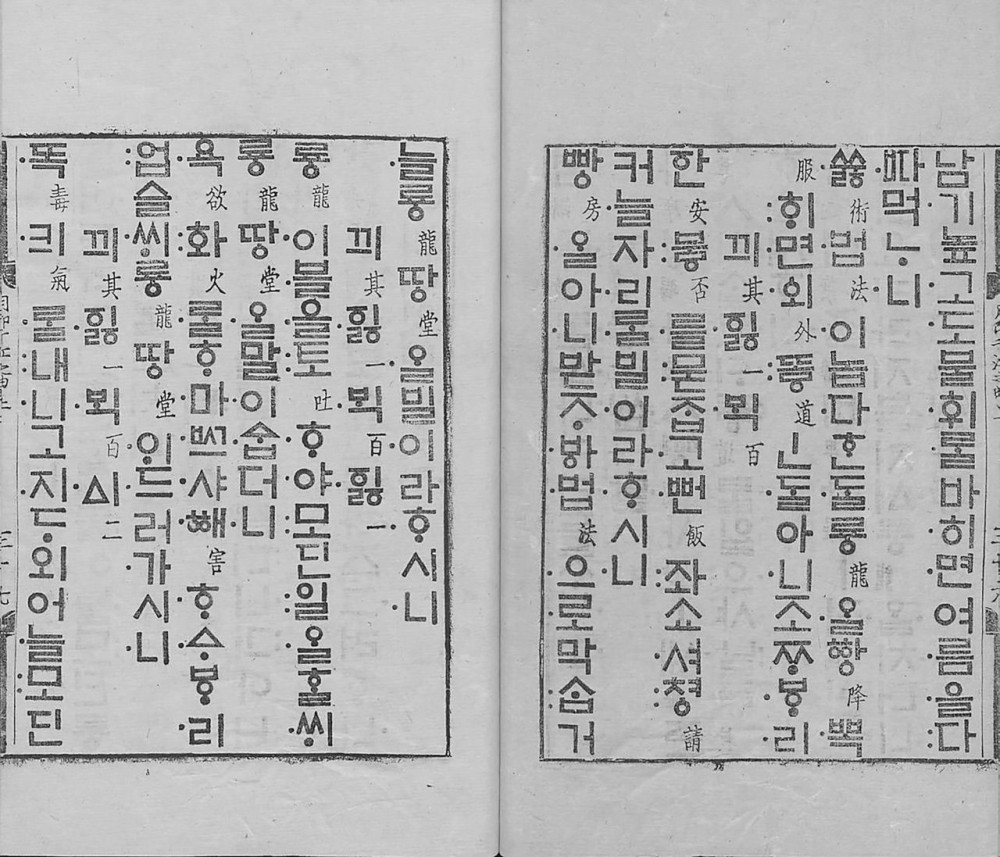 남기높고도불휘ᄅᆞᆯ바히면여름을다
ᄠᅡ먹ᄂᆞ니
쓔ᇙ術법法이놉다ᄒᆞᆫᄃᆞᆯ룡龍ᄋᆞᆯᅘᅡᇰ降뽁
服ᄒᆡ면외外또ᇢ道ㅣᆫᄃᆞᆯ아니조ᄍᆞᄫᆞ리
끠其ᅙᅵᇙ一ᄇᆡᆨ百
ᅙᅡᆫ安부ᇢ否를묻ᄌᆞᆸ고뻔飯좌쇼셔쳥請
커늘자리ᄅᆞᆯ빌이라ᄒᆞ시니
빵房ᄋᆞᆯ아니받ᄌᆞᄫᅡ법法으로막ᄉᆞᆸ거
늘룡龍땅堂ᄋᆞᆯ빌이라ᄒᆞ시니
끠其ᅙᅵᇙ一ᄇᆡᆨ百ᅙᅵᇙ一
룡龍이블을토吐ᄒᆞ야모딘일ᄋᆞᆯᄒᆞᆯᄊᆡ
룡龍땅堂ᄋᆞᆯ말이ᅀᆞᆸ더니
욕欲화火ᄅᆞᆯᄒᆞ마ᄢᅳ샤ᅘᅢ害ᄒᆞᅀᆞᄫᆞ리
업슬ᄊᆡ룡龍땅堂ᄋᆡ드러가시니
끠其ᅙᅵᇙ一ᄇᆡᆨ百ᅀᅵ二
똑毒킈氣ᄅᆞᆯ내니고지ᄃᆞ외어늘모딘